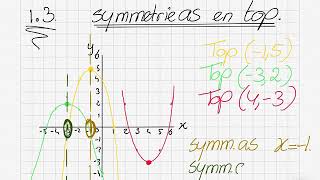 1.3. symmetrieas en top.
Top (-1,5)
Top (-3,2)
Top (4,-3)
y
5
4
3
2
1
-5 -4 -3 -1 2 3 4 5 6 x
-1
-2
-3
symm.as x=-1.
symm.